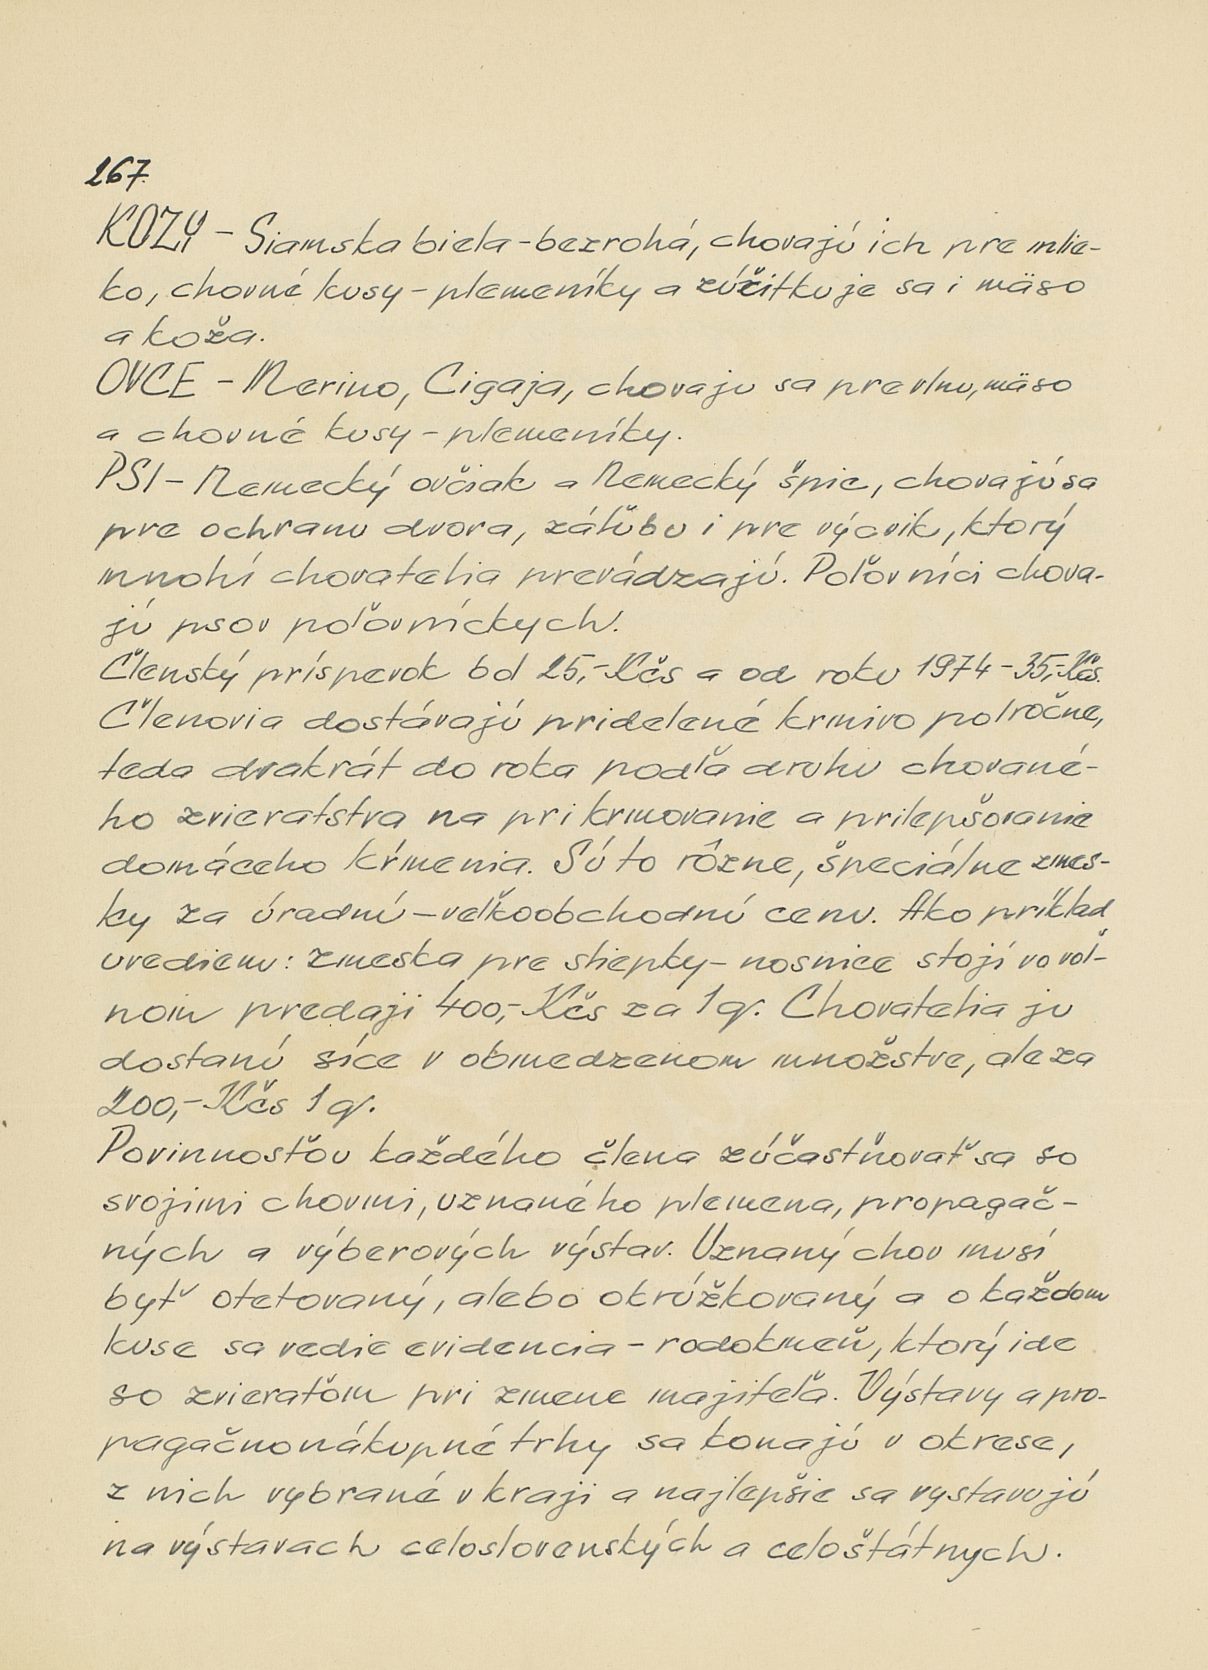 267.
KOZY - Siamska biela - bezrohá, chovajú ich pre mlie-
ko, chovné kusy - plemeníky a zúžitkuje sa i mäso
a koža.
OVCE - Merino, Cigaja, chovaju sa pre vlnu, mäso
a chovné kusy - plemeníky.
PSI - Nemecký ovčiak a Nemecký špic, chovajú sa
pre ochranu dvora, záľubu i pre výcvik, ktorý
mnohí chovatelia prevádzajú. Poľovníci chova-
jú psov poľovníckych.
Členský príspevok bol 25,- Kčs a od roku 1974 - 35,- Kčs.
Členovia dostávajú pridelené krmivo polročne,
teda dvakrát do roka podľa druhu chované-
ho zvieratstva na prikrmovanie a prilepšovanie
domáceho kŕmenia. Sú to rôzne, špeciálne zmes-
ky za úradnú - veľkoobchodnú cenu. Ako príklad
uvediem: zmeska pre sliepky - nosnice stojí vo voľ-
nom predaji 400,- Kčs za 1 q. Chovatelia ju
dostanú síce v obmedzenom množstve, ale za
200,- Kčs 1 q.
Povinnosťou každého člena zúčastňovať sa so
svojimi chovmi, uznaného plemena, propagač-
ných a výberových výstav. Uznaný chov musí
byť otetovaný, alebo okrúžkovaný a o každom
kuse sa vedie evidencia - rodokmeň, ktorý ide
so zvieraťom pri zmene majiteľa. Výstavy a pro-
pagačnonákupné trhy sa konajú v okrese,
z nich vybrané v kraji a najlepšie sa vystavujú
na výstavach celoslovenských a celoštátnych.